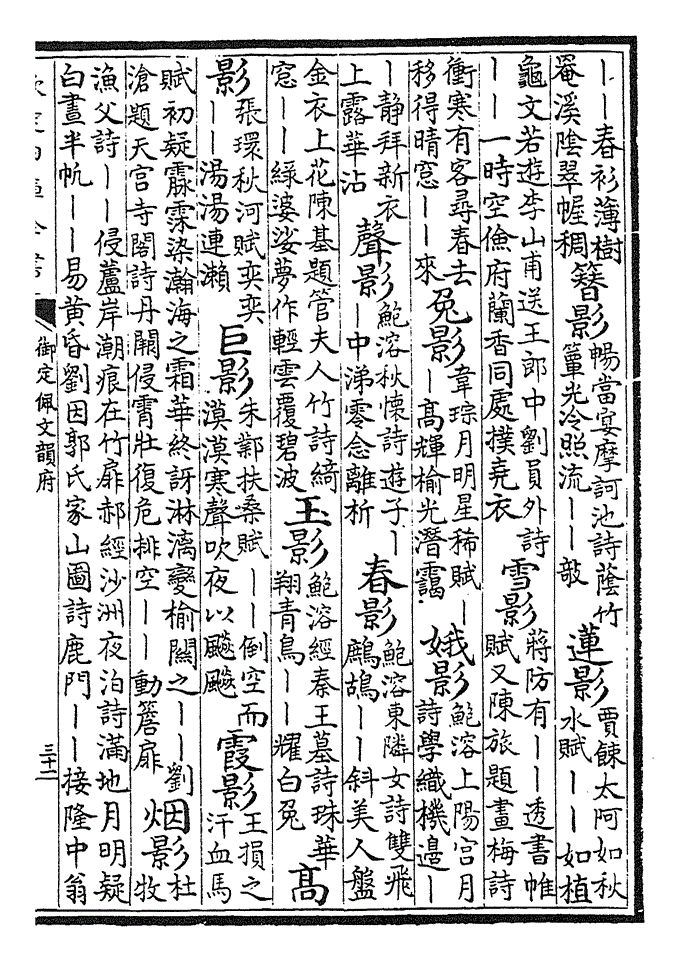 ——春衫薄樹
菴溪陰翠幄稠
簪影
暢當宴摩訶池詩蔭竹
簟光冷照流——欹
蓮影
賈餗太阿如秋
水賦——如植
龜文若遊李山甫送王郎中劉員外詩
——一時空儉府蘭香同處撲堯衣
雪影
蔣防有——透書帷
賦又陳旅題畫梅詩
衝寒有客尋春去
移得晴窓——來
兔影
韋琮月明星稀賦—
—高輝榆光潛靄
娥影
鮑溶上陽宮月
詩學織機邊—
—靜拜新衣
上露華沾
聲影
鮑溶秋懷詩遊子—
—中涕零念離析
春影
鮑溶東隣女詩雙飛
鷓鴣——斜美人盤
金衣上花陳基題管夫人竹詩綺
窓——緑婆娑夢作輕雲覆碧波
玉影
鮑溶經秦王墓詩珠華
翔青鳥——耀白兔
高
影
張環秋河賦奕奕
——湯湯連瀬
巨影
朱鄴扶桑賦——倒空而
漠漠寒聲吹夜以颷颷
霞影
王損之
汗血馬
賦初疑霢霂染瀚海之霜華終訝淋漓變榆關之——劉
滄題天宮寺閣詩丹闕侵霄壯復危排空——動簷扉
烟影
杜
牧
漁父詩——侵蘆岸潮痕在竹扉郝經沙洲夜泊詩滿地月明疑
白晝半帆——易黄昏劉因郭氏家山圖詩鹿門——接隆中翁
御定佩文韻府
三十二